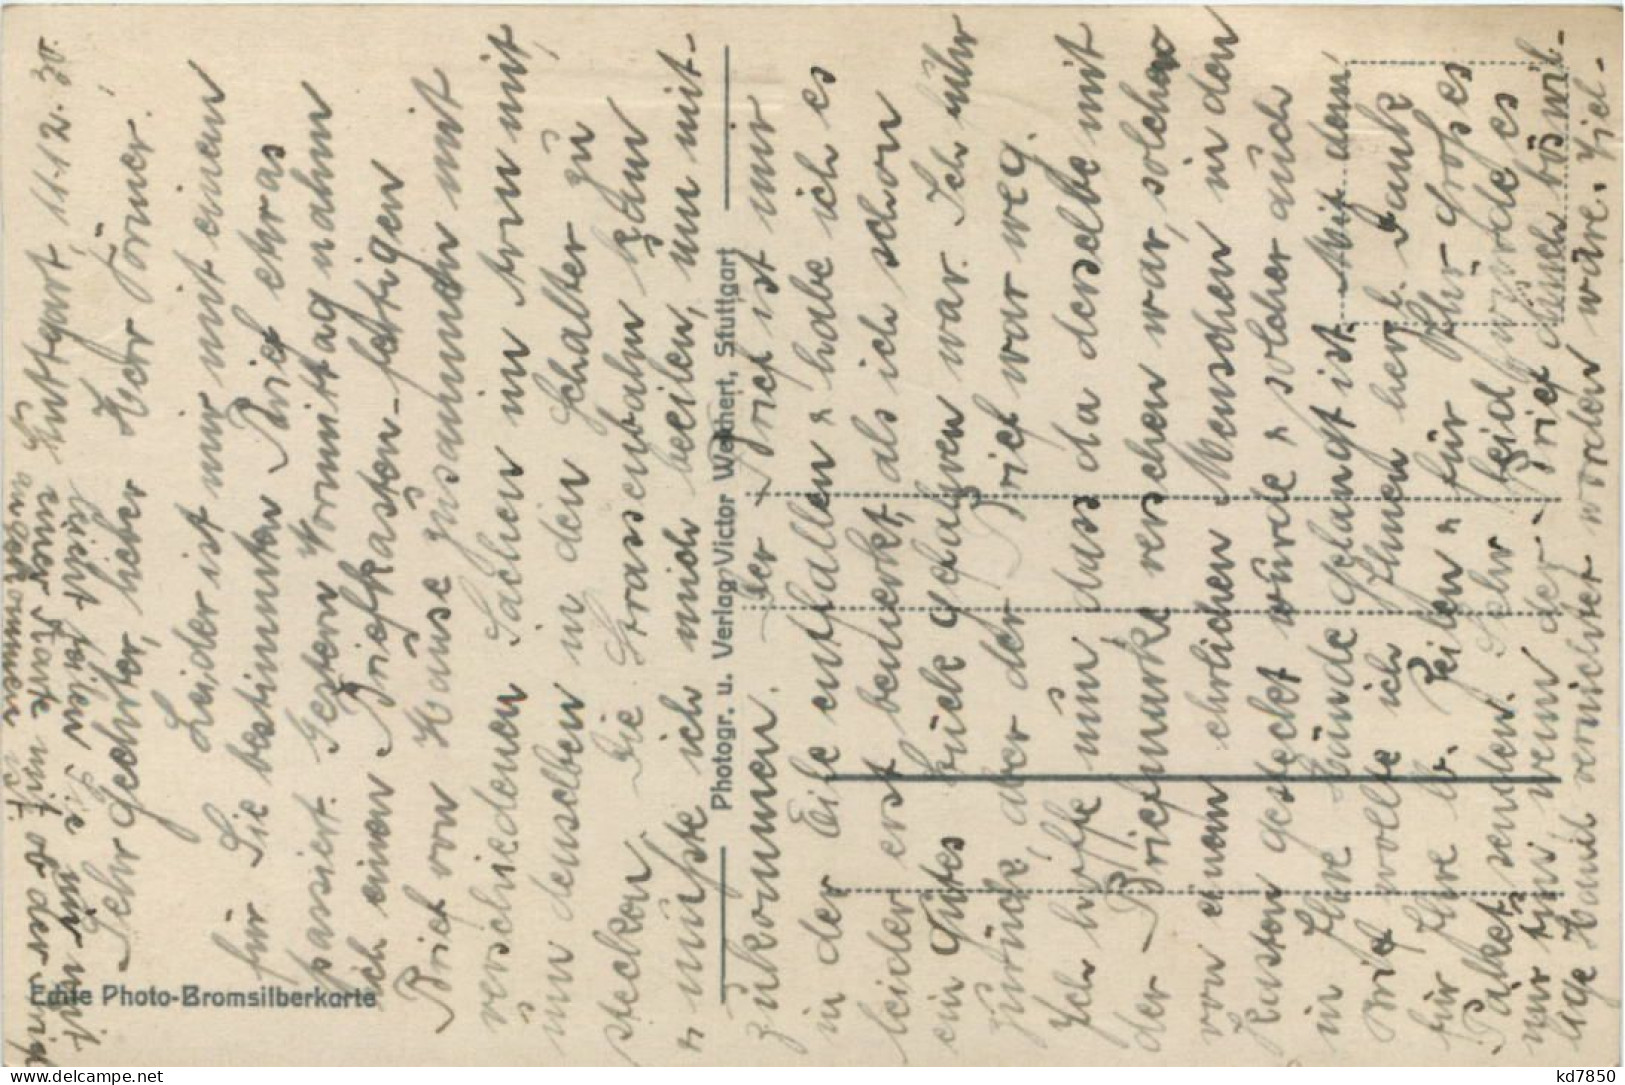 Stuttgart, 11.12.30.
Sehr geehrter, lieber Herr Körner!
Leider ist mir mit einem
für Sie bestimmten Brief etwas
passiert. Gestern Vormittag nahm
ich einen Briefkasten-fertigen
Brief von Hause zusammen mit
verschiedenen Sachen im Arm mit,
um denselben in den Schalter zu
stecken. Die Strassenbahn kam
u. musste ich mich beeilen, um mit-
zukommen. Der Brief ist mir
in der Eile entfallen u. habe ich es
leider erst bemerkt, als ich schon
ein Gutes Stück gefahren war. Ich fuhr
zurück, aber der Brief war weg.
Ich hoffe nun, dass da derselbe mit
der Briefmarke versehen war, solcher
von einem ehrlichen Menschen in den
Kasten gesteckt wurde u. solcher auch
in Ihre Hände gelangt ist. Mit dem
Brief wollte ich Ihnen herzl. Dank
für Ihre lb. Zeilen u. für Ihr Großes
Paket senden. Sehr leid würde es
mir tun, wenn der Brief durch böswil-
lige Hand vernichtet worden wäre. Viel-
leicht teilen Sie mir mit
einer Karte mit ob der Brief
angekommen ist.
Echte Photo-Bromsilberkarte
Photogr. u. Verlag Victor Weichert, Stuttgart
www.delcampe.net
kd7850